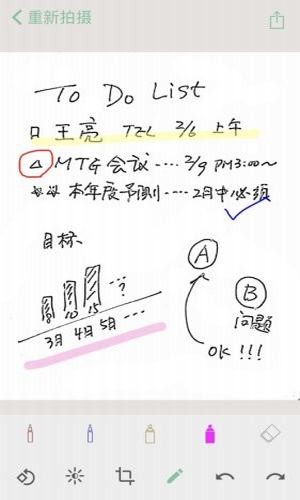 重新拍摄
To Do List
王亮 TEL 2/6 上午
MTG 会议 ···· 2/9 PM3:00~
本年度予測 ···· 2月中必须
目标
A
B
问题
8 10 15 ··· ?
3月 4月 5月 ···
OK !!!